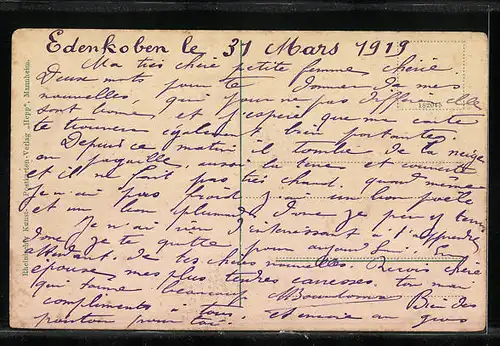 Edenkoben le 31 Mars 1919
Ma très chère petite femme chérie.
Deux mots pour te donner de mes
nouvelles qui pour ne pas
sont bonne et j'espère que ma carte
te trouvera également bien portante.
Depuis ce matin il tombe de la neige
en aussi la terre et couverte
et il ne fait pas très chaud. quand même
je n'ai pas froid un bon poêle
et un bon donc je peu y tenir
Je n'ai rien d'interessant à t'apprendre
donc je te quitte pour aujourd'hui. En
attendant de tes chères nouvelles. Reçois chère
épouse mes plus tendres caresses. ton mari
qui t'aime beaucoup Bien des
compliments à tous et encore un gros
pour toi.
Rheinische Kunst- Postkarten-Verlag „Hepp", Mannheim.